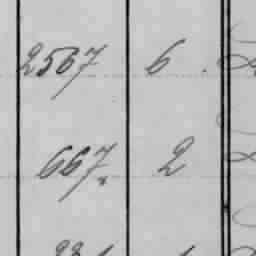 2567 6
667 2